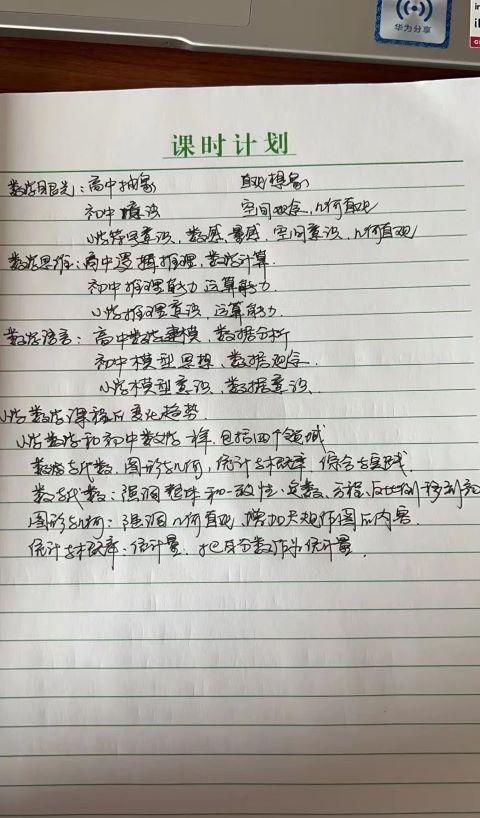 华为分享
课时计划
数学眼光：高中抽象 直观想象
初中 意识 空间观念，几何直观
小学符号意识，数感，量感，空间意识，几何直观
数学思维：高中逻辑推理，数学计算．
初中推理能力，运算能力．
小学推理意识，运算能力．
数学语言：高中数学建模，数据分析
初中模型思想，数据观念．
小学模型意识，数据意识．
小学数学课程的变化趋势．
小学数学和初中数学一样，包括四个领域
数与代数，图形与几何，统计与概率，综合与实践．
数与代数：强调整体和一致性，负数、方程、反比例移到初
图形与几何：强调几何直观，增加尺规作图的内容．
统计与概率：统计量，把百分数作为统计量．